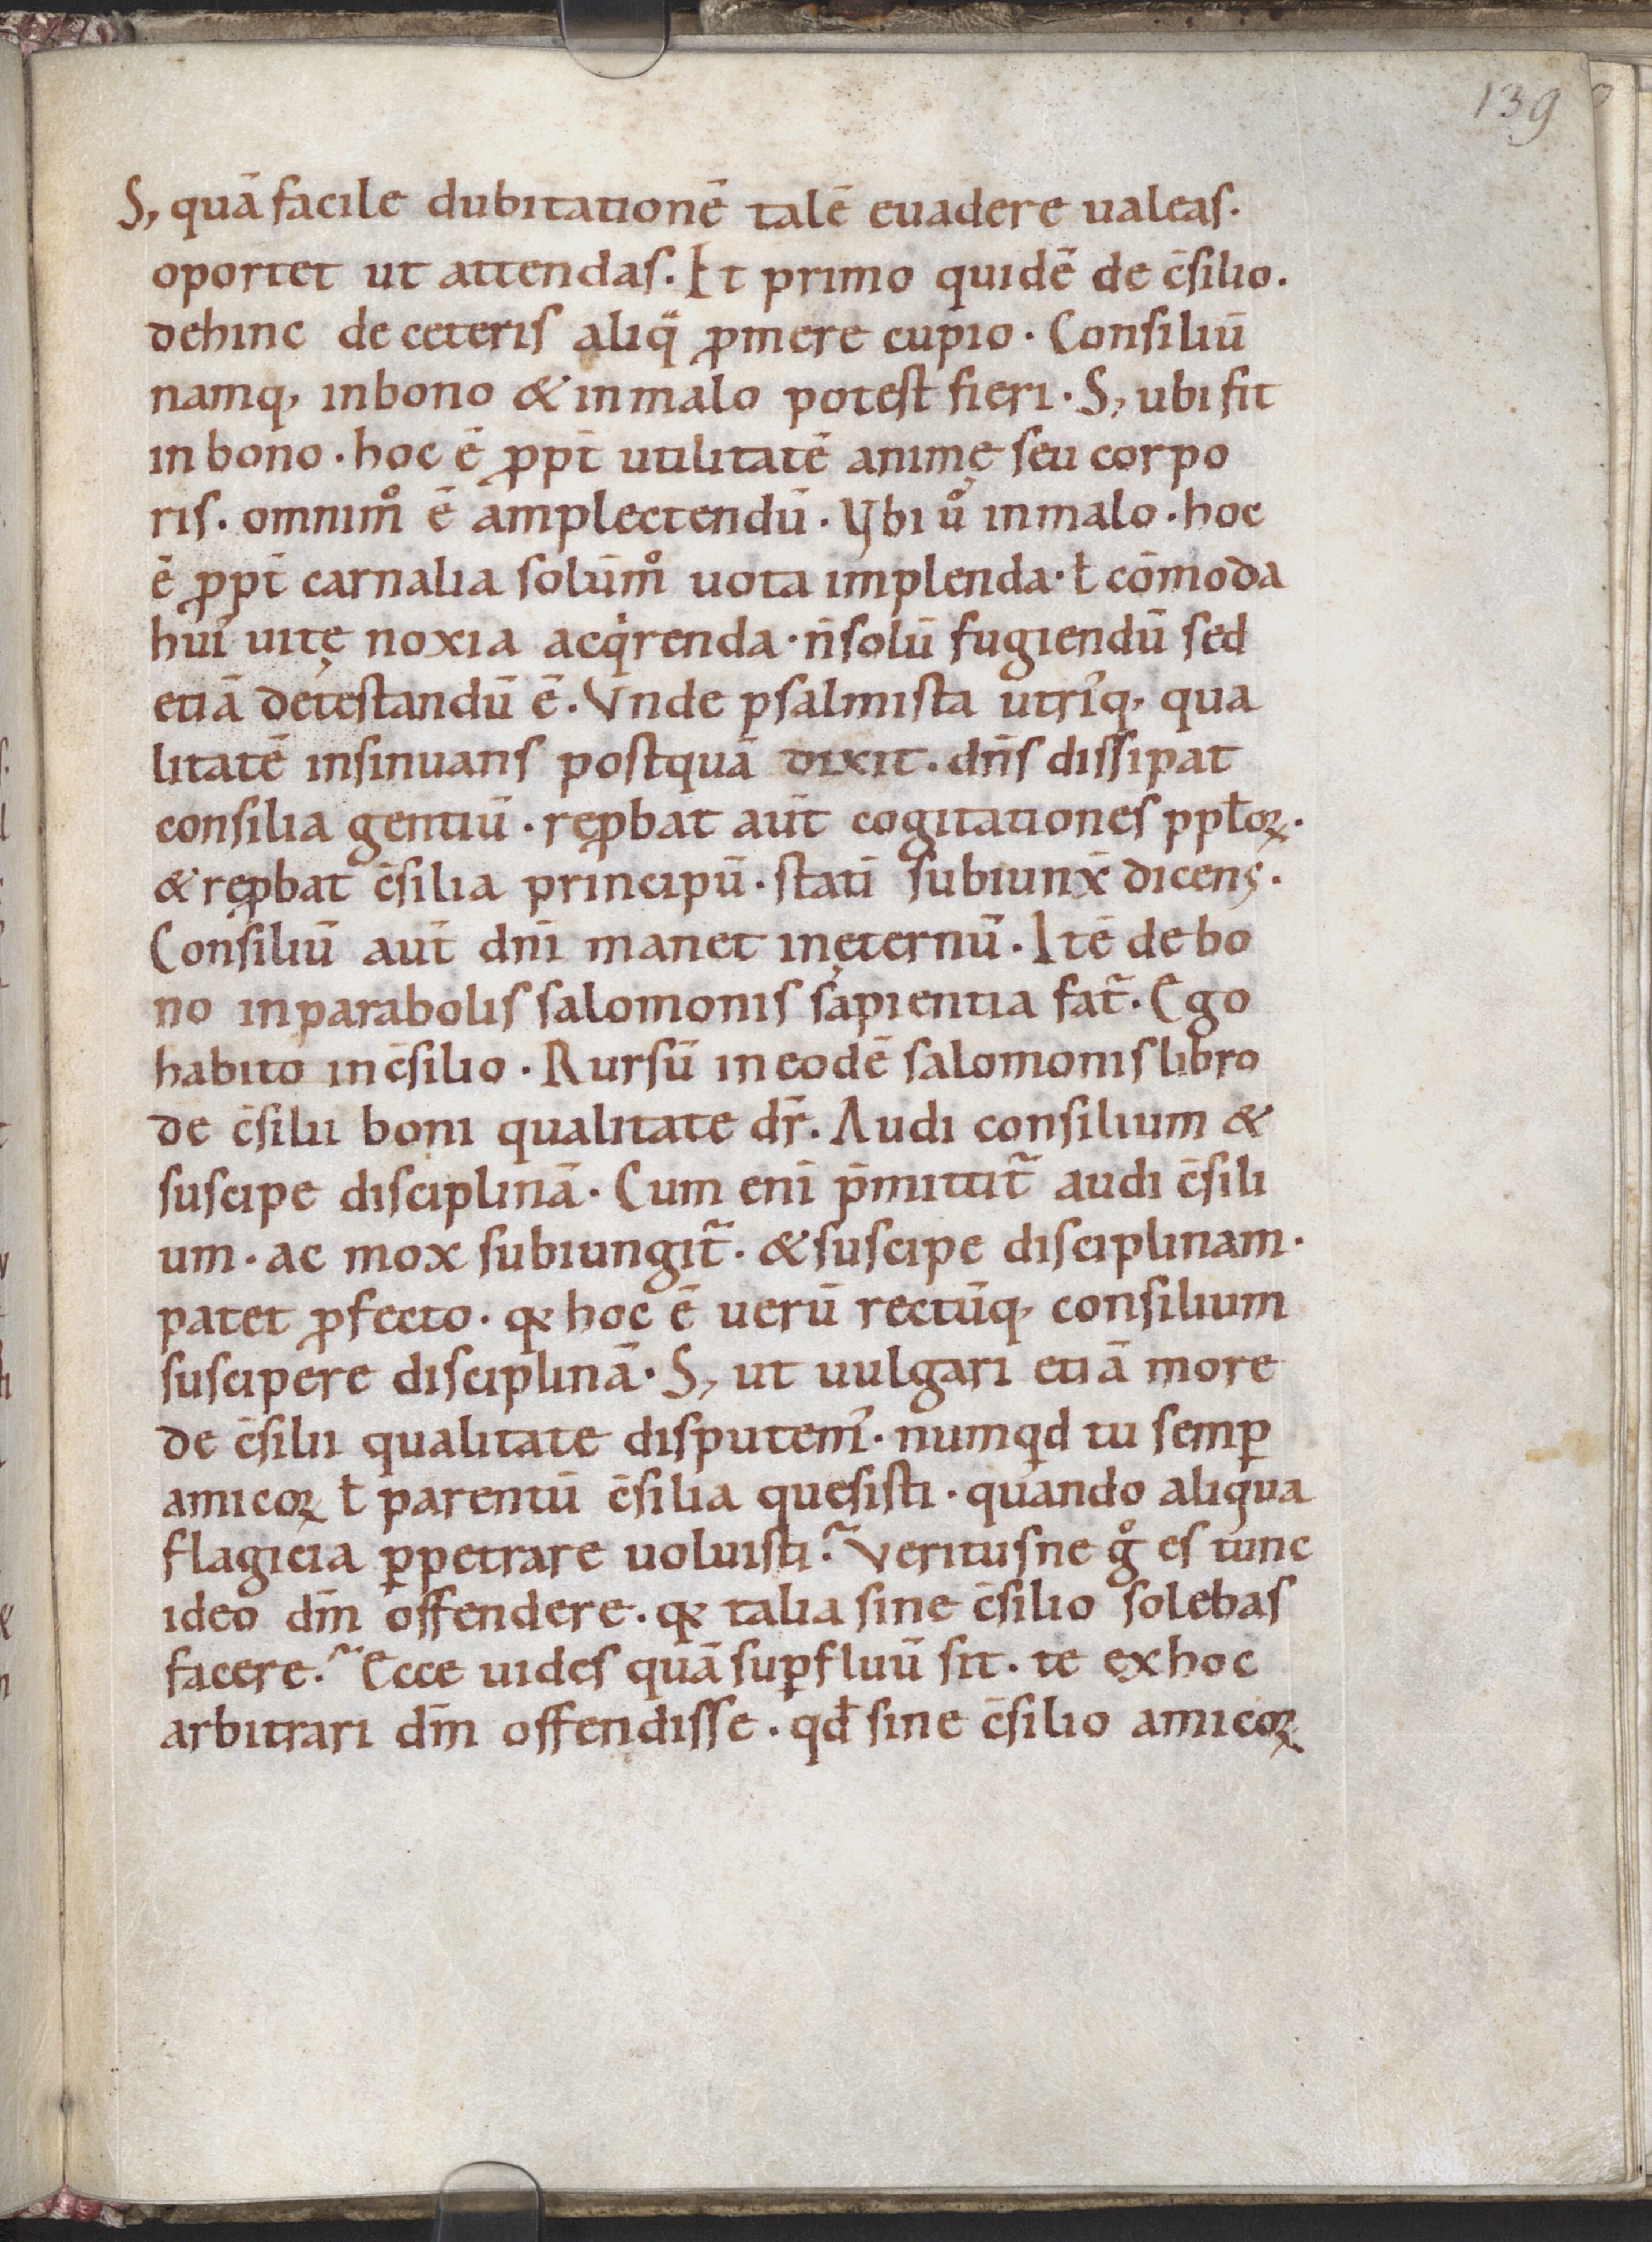 139
S, quā facile dubitationē talē euadere ualeas.
oportet ut attendas. Et primo quidē de c̄silio.
dehinc de ceteris aliq̈ ꝓmere cupio. Consiliū
namq, in bono & in malo potest fieri. S, ubi fit
in bono. hoc ē ꝓpt̄ utilitatē animę seu corpo
ris. omnim̊ ē amplectendū. Vbi ů in malo. hoc
ē ꝓpt̄ carnalia solūm̊ uota implenda. ł cōmoda
hui᾽ uitę noxia acqͥrenda. n̄ solū fugiendū sed
etiā detestandū ē. Vnde psalmista utri᾽q, qua
litatē insinuans postquā dixit. dn̄s dissipat
consilia gentiū. reꝓbat aūt cogitationes ppłoꝝ.
& reꝓbat c̄silia principū. statī subiunx̄ dicens.
Consiliū aūt dn̄i manet in ęternū. Itē de bo
no in parabolis salomonis sapientia fat᷑. Ego
habito in c̄silio. Rursū in eodē salomonis libro
de c̄silii boni qualitate dr̄. Audi consilium &
suscipe disciplinā. Cum enī p̄mittit᷑ audi c̄sili
um. ac mox subiungit᷑. & suscipe disciplinam.
patet ꝓfecto. qꝛ hoc ē uerū rectūq, consilium
suscipere disciplinā. S, ut uulgari etiā more
de c̄silii qualitate disputem᾽. numqͥd tu semꝑ
amicoꝝ ł parentū c̄silia quesisti. quando aliqua
flagicia ꝑpetrare uoluisti? Veritusne g̊ es tunc
ideo dm̄ offendere. qꝛ talia sine c̄silio solebas
facere? Ecce uides quā suꝑfluū sit. te ex hoc
arbitrari dm̄ offendisse. qđ sine c̄silio amicoꝝ